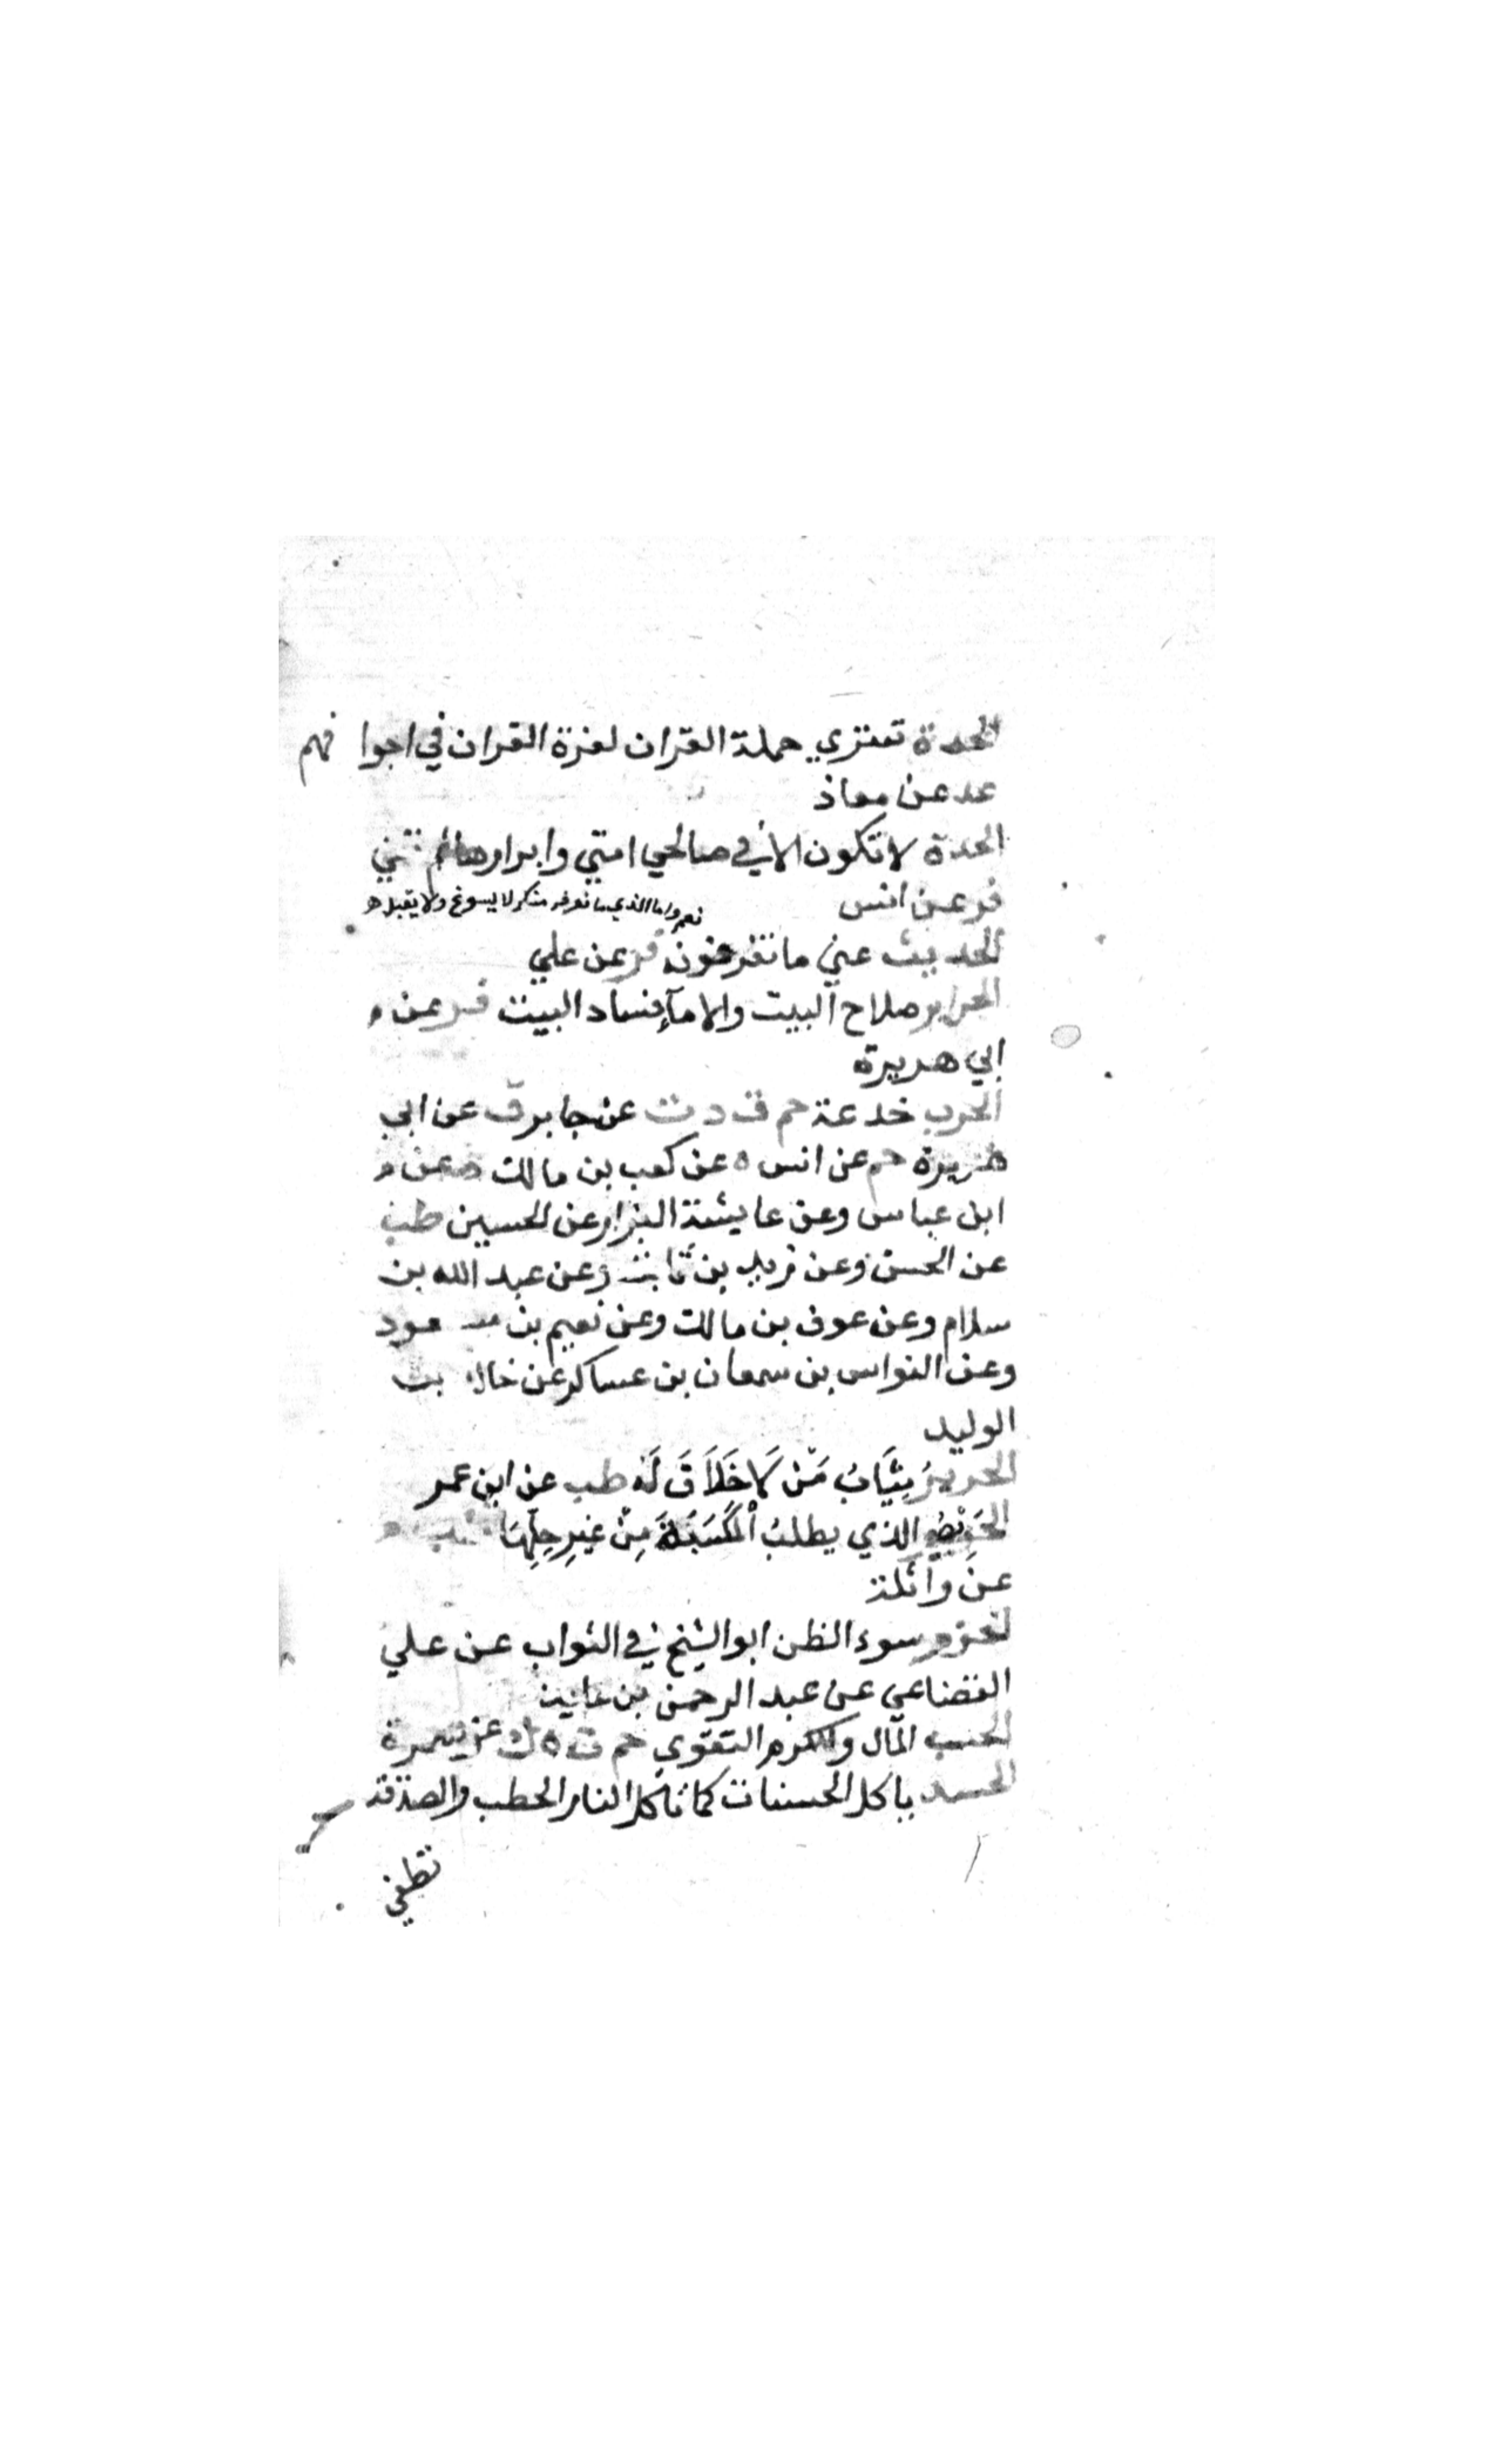 الحدة تعتري حملة القران لعزة القران في اجوا فهم
عد عن معاذ
الحدة لا تكون الا في صالحي امتي وابرارها ثم
فر عن انس
نعم واما الذي ما نعرفه منكر لا يسوغ ولا يقبل ه
الحديث عني ما تعرفونه فر عن علي
الحراير صلاح البيت والامآ فساد البيت فر عن
ابي هريرة
الحرب خدعة حم ق د ت عن جابر ق عن ابي
هريرة حم عن انس ه عن كعب بن مالك عن
ابن عباس وعن عايشة البزار عن الحسين طب
عن الحسن وعن زيد بن ثابت وعن عبد الله بن
سلام وعن عوف بن مالك وعن نعيم بن مسعود
وعن النواس بن سمعان بن عساكر عن خالد بن
الوليد
الحرير ثِيَابُ مَنْ لَا خَلَاَقَ لَهُ طب عن ابن عمر
الحَرِيْصُ الذي يطلبُ اْلمَكْسَبَةَ مِنْ غيرِ حِلِهَا طب
عن وآثلة
الحزم سوء الظن ابو الشيخ في الثواب عن علي
القضاعي عن عبد الرحمن بن عايذ
الحسب المآل والكرم التقوي حم ت ه ك عن سمرة
الحسد ياكل الحسنات كما تاكل النار الحطب والصدقة
تطفي